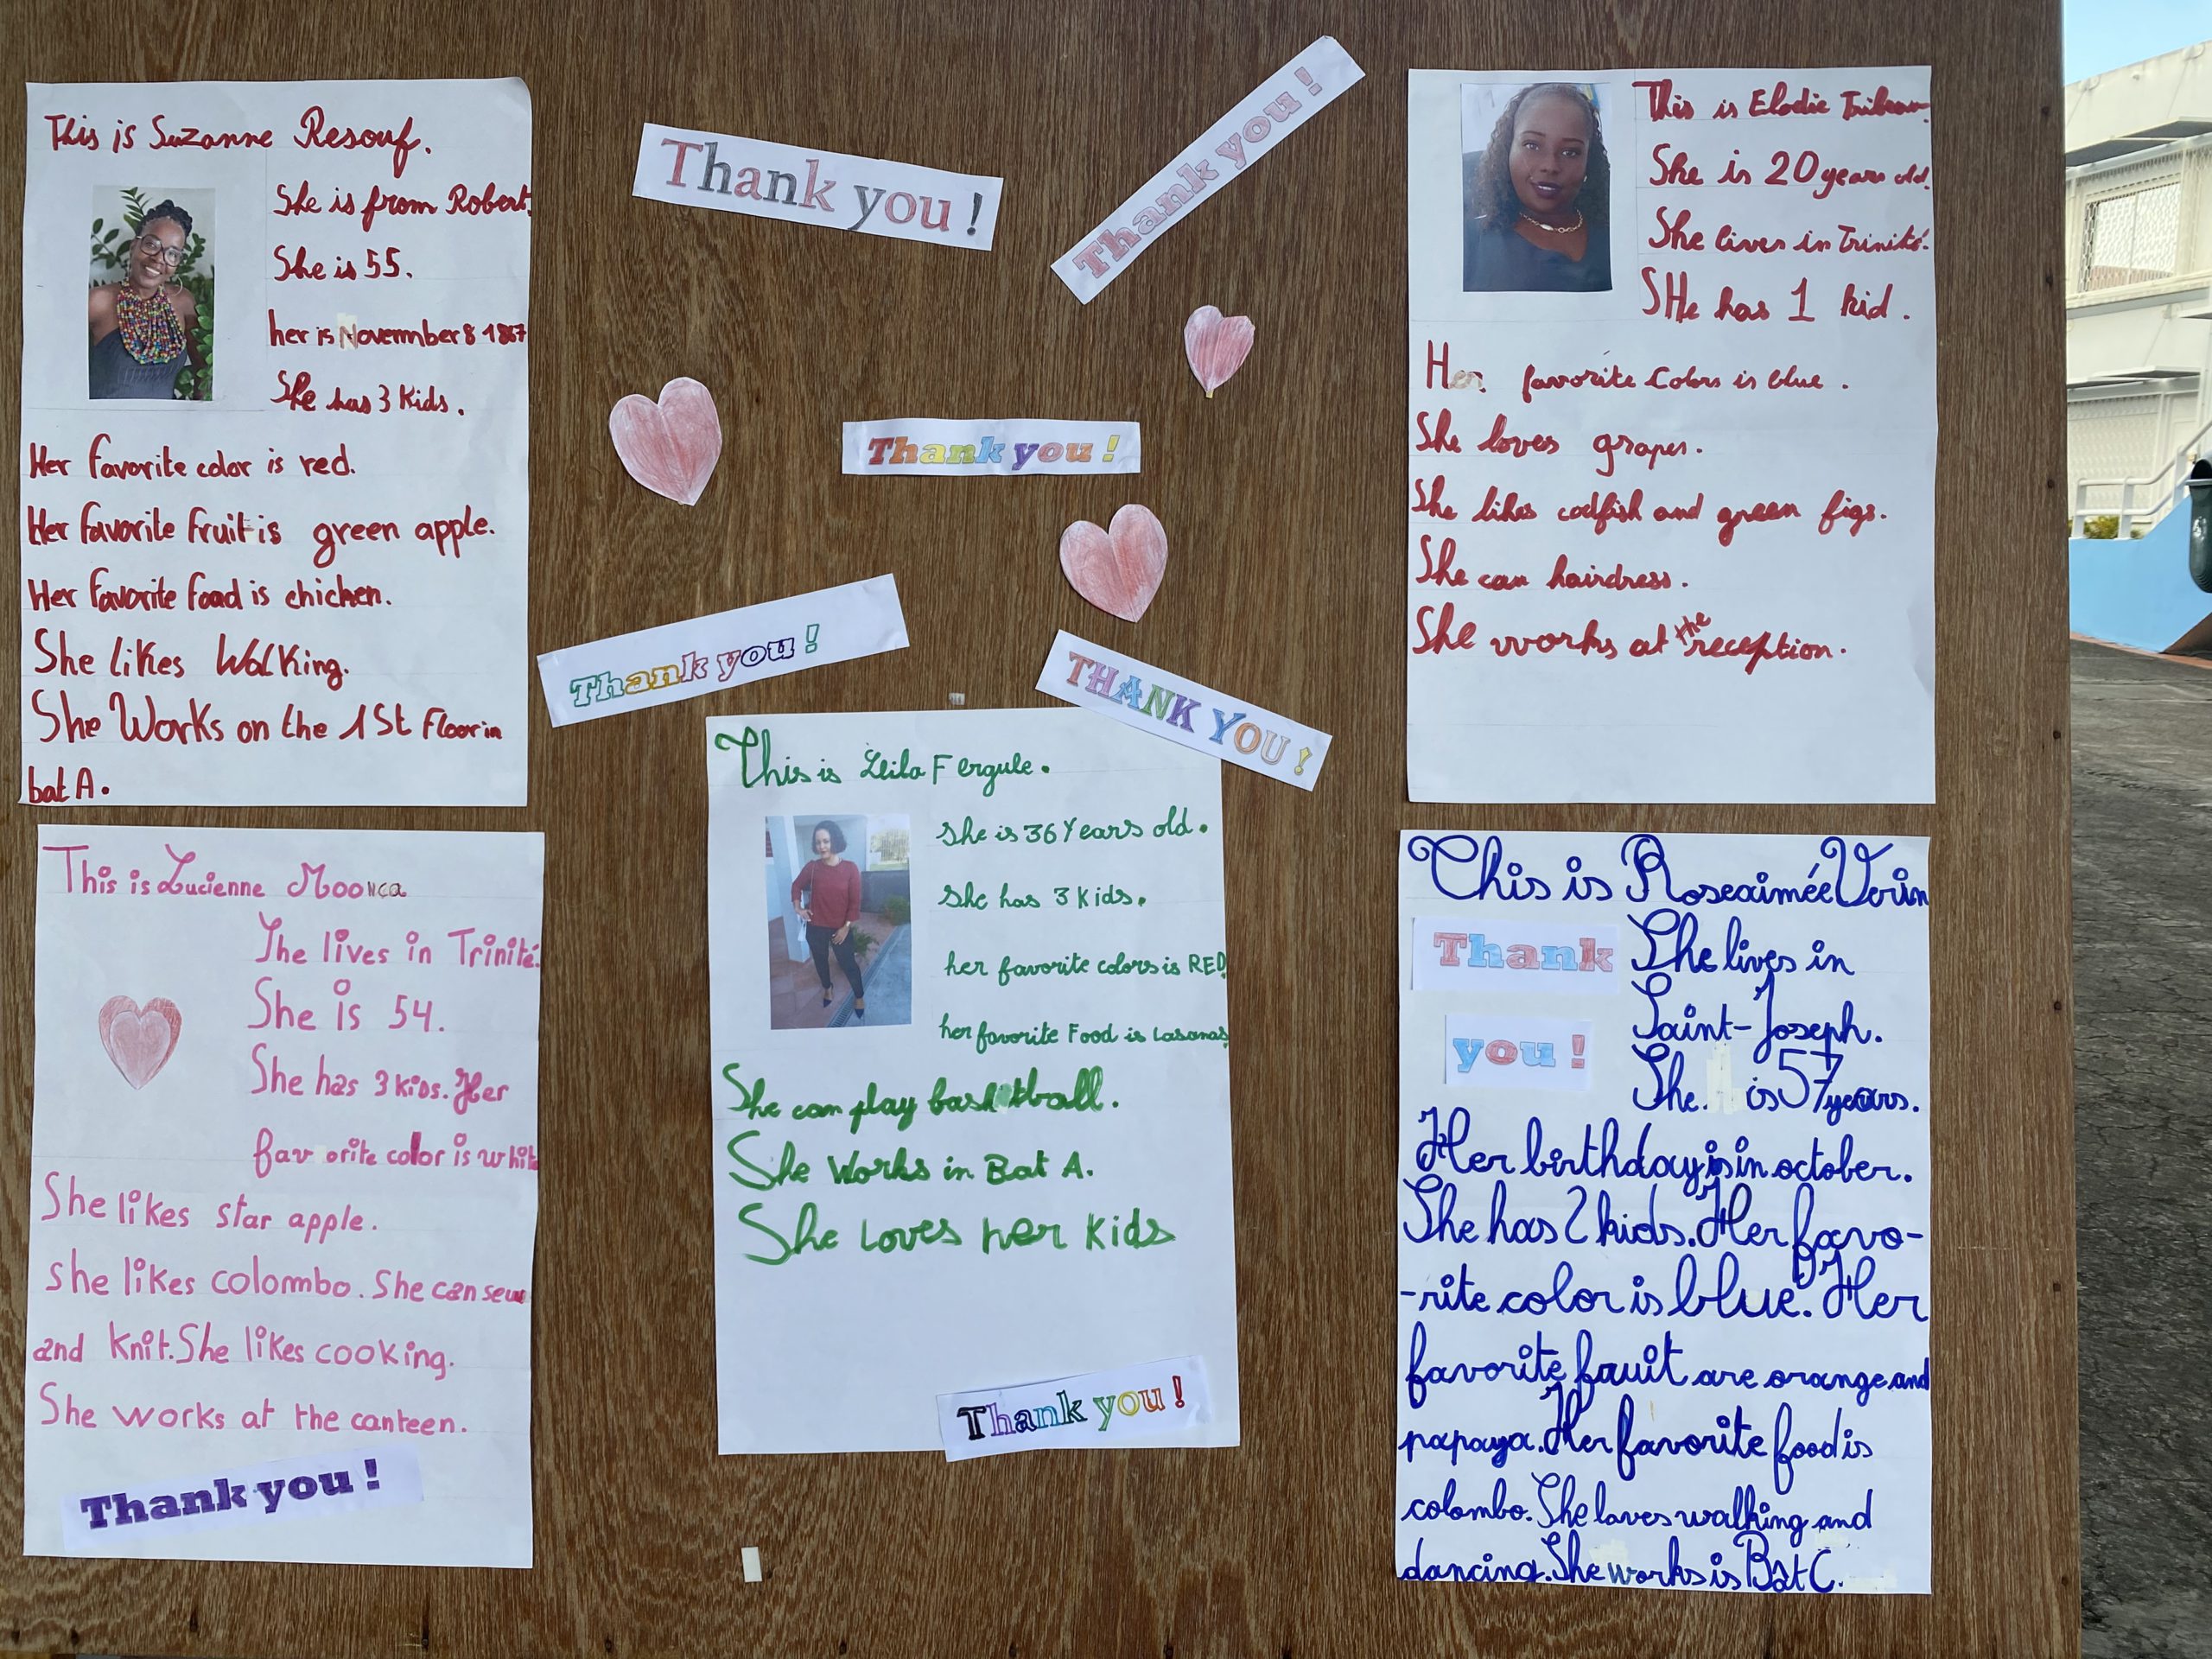 This is Suzanne Resouf.
She is from Robert.
She is 55.
her is Novermber 8 1867
She has 3 Kids.
Her favorite color is red.
Her favorite fruit is green apple.
Her favorite food is chicken.
She likes Walking.
She Works on the 1St Floor in
bat A.
Thank you !
Thank you !
Thank you !
Thank you !
THANK YOU !
This is Elodie
She is 20 years old.
She lives in Trinité.
SHe has 1 kid.
Her favorite Colors is blue.
She loves grapes.
She likes codfish and green figs.
She can hairdress.
She works at the reception.
This is Lucienne
She lives in Trinité.
She is 54.
She has 3 kids. Her
favorite color is white
She likes star apple.
she likes colombo. She can sew
and Knit. She likes cooking.
She works at the canteen.
Thank you !
This is Leila Fergule.
she is 36 Years old.
she has 3 kids.
her favorite colors is RED
her favorite Food is Lasanas
She can play basketball.
She Works in Bat A.
She Loves her kids
Thank you !
This is Roseaimée Vorin
Thank
you !
She lives in
Saint-Joseph.
She is 57 years.
Her birthday is in october.
She has 2 kids. Her favo-
-rite color is blue. Her
favorite fruit are orange and
papaya. Her favorite food is
colombo. She loves walking and
dancing. She works is Bât C.